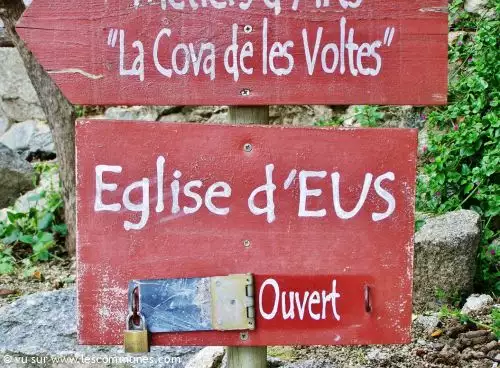 Métiers d'Arts
"La Cova de les Voltes"
Eglise d'EUS
Ouvert
© vu sur www.lescommunes.com